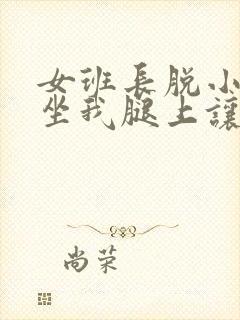 女班長脱小
坐我腿上讓
尚荣